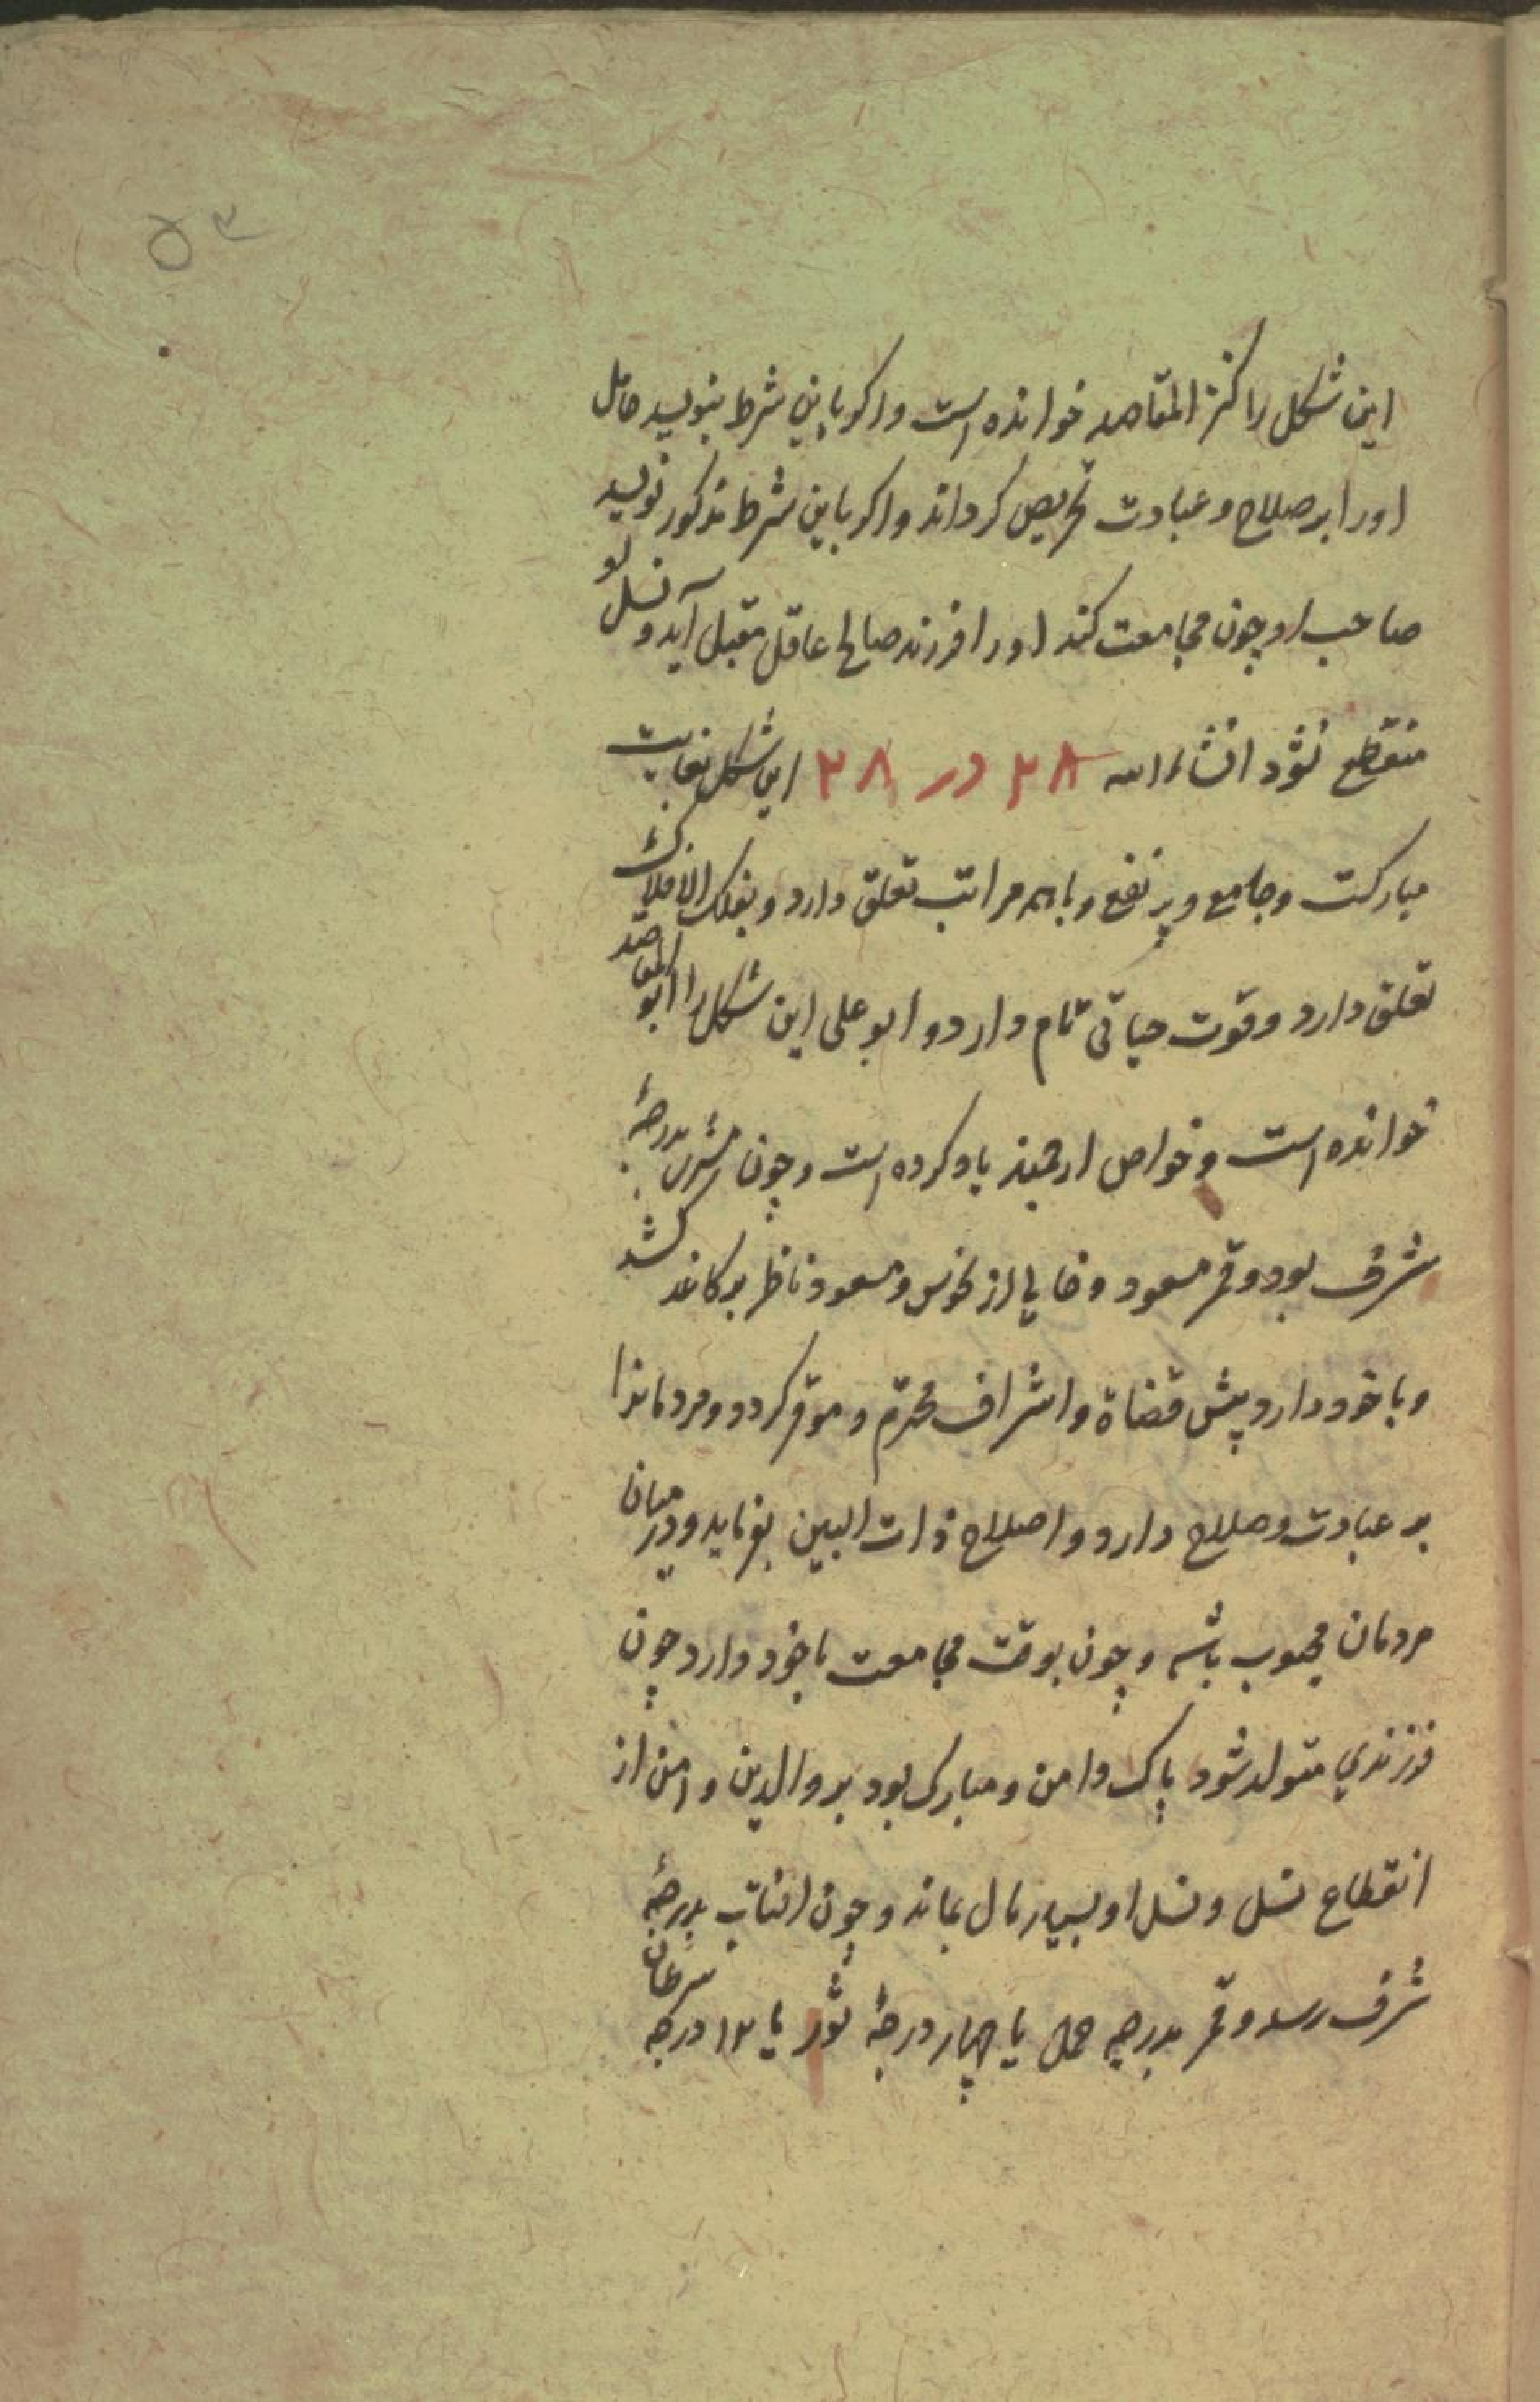 ۵۳
این شکل را کنز المقاصد خوانده است و اکر باین شرط بنویسد حامل
اورا بر صلاح و عبادت تحریص کرداند و اکر باین شرط مذکور نویسد
صاحب او چون مجامعت کند اورا فرزند صالح عاقل مقبل آید و نسل او
منقطع نشود انشاء الله ۲۸ در ۲۸ این شکل بغایت
مبارکست و جامع و پر نفع و باهمه مراتب تعلق دارد و بفلک الافلاک
تعلق دارد و قوت حیاتی تمام دارد و ابو علی این شکل را ابو المقاصد
خوانده است و خواص ارجمند یاد کرده است و چون مشتری بدرجهٔ
شرف بود و قمر مسعود و خالی از نحوس و مسعود ناظر بر کاغذ کشد
و با خود دارد پیش قضاة و اشراف محترم و موقر کردد و مردمانرا
بر عبادت و صلاح دارد و اصلاح ذات البین بفرماید و در میان
مردمان محبوب باشد و چون بوقت مجامعت با خود دارد چون
فرزندی متولد شود پاک دامن و مبارک بود بر والدین و امن از
انقطاع نسل و نسل او بسیار سال بماند و چون افتاب بدرجهٔ
شرف رسد و قمر بدرجه حمل یا چهار درجهٔ ثور یا ۱۲ درجه سرطان